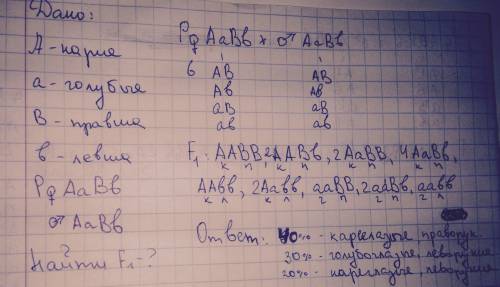 Дано:
А - карие
а - голубые
В - правша
в - левша
Р ♀ АаВв
♂ АаВв
Найти F₁ - ?
Р ♀ АаВв × ♂ АаВв
б АВ АВ
Ав Ав
аВ аВ
ав ав
F₁: ААВВ, 2ААВв, 2АаВВ, 4АаВв,
к п к п к п к п
ААвв, 2Аавв, ааВВ, 2ааВв, аавв
к л к л г п г п г л
Ответ: 40% - кареглазые, праворук.
30% - голубоглазые, леворукие
20% - кареглазые, леворукие